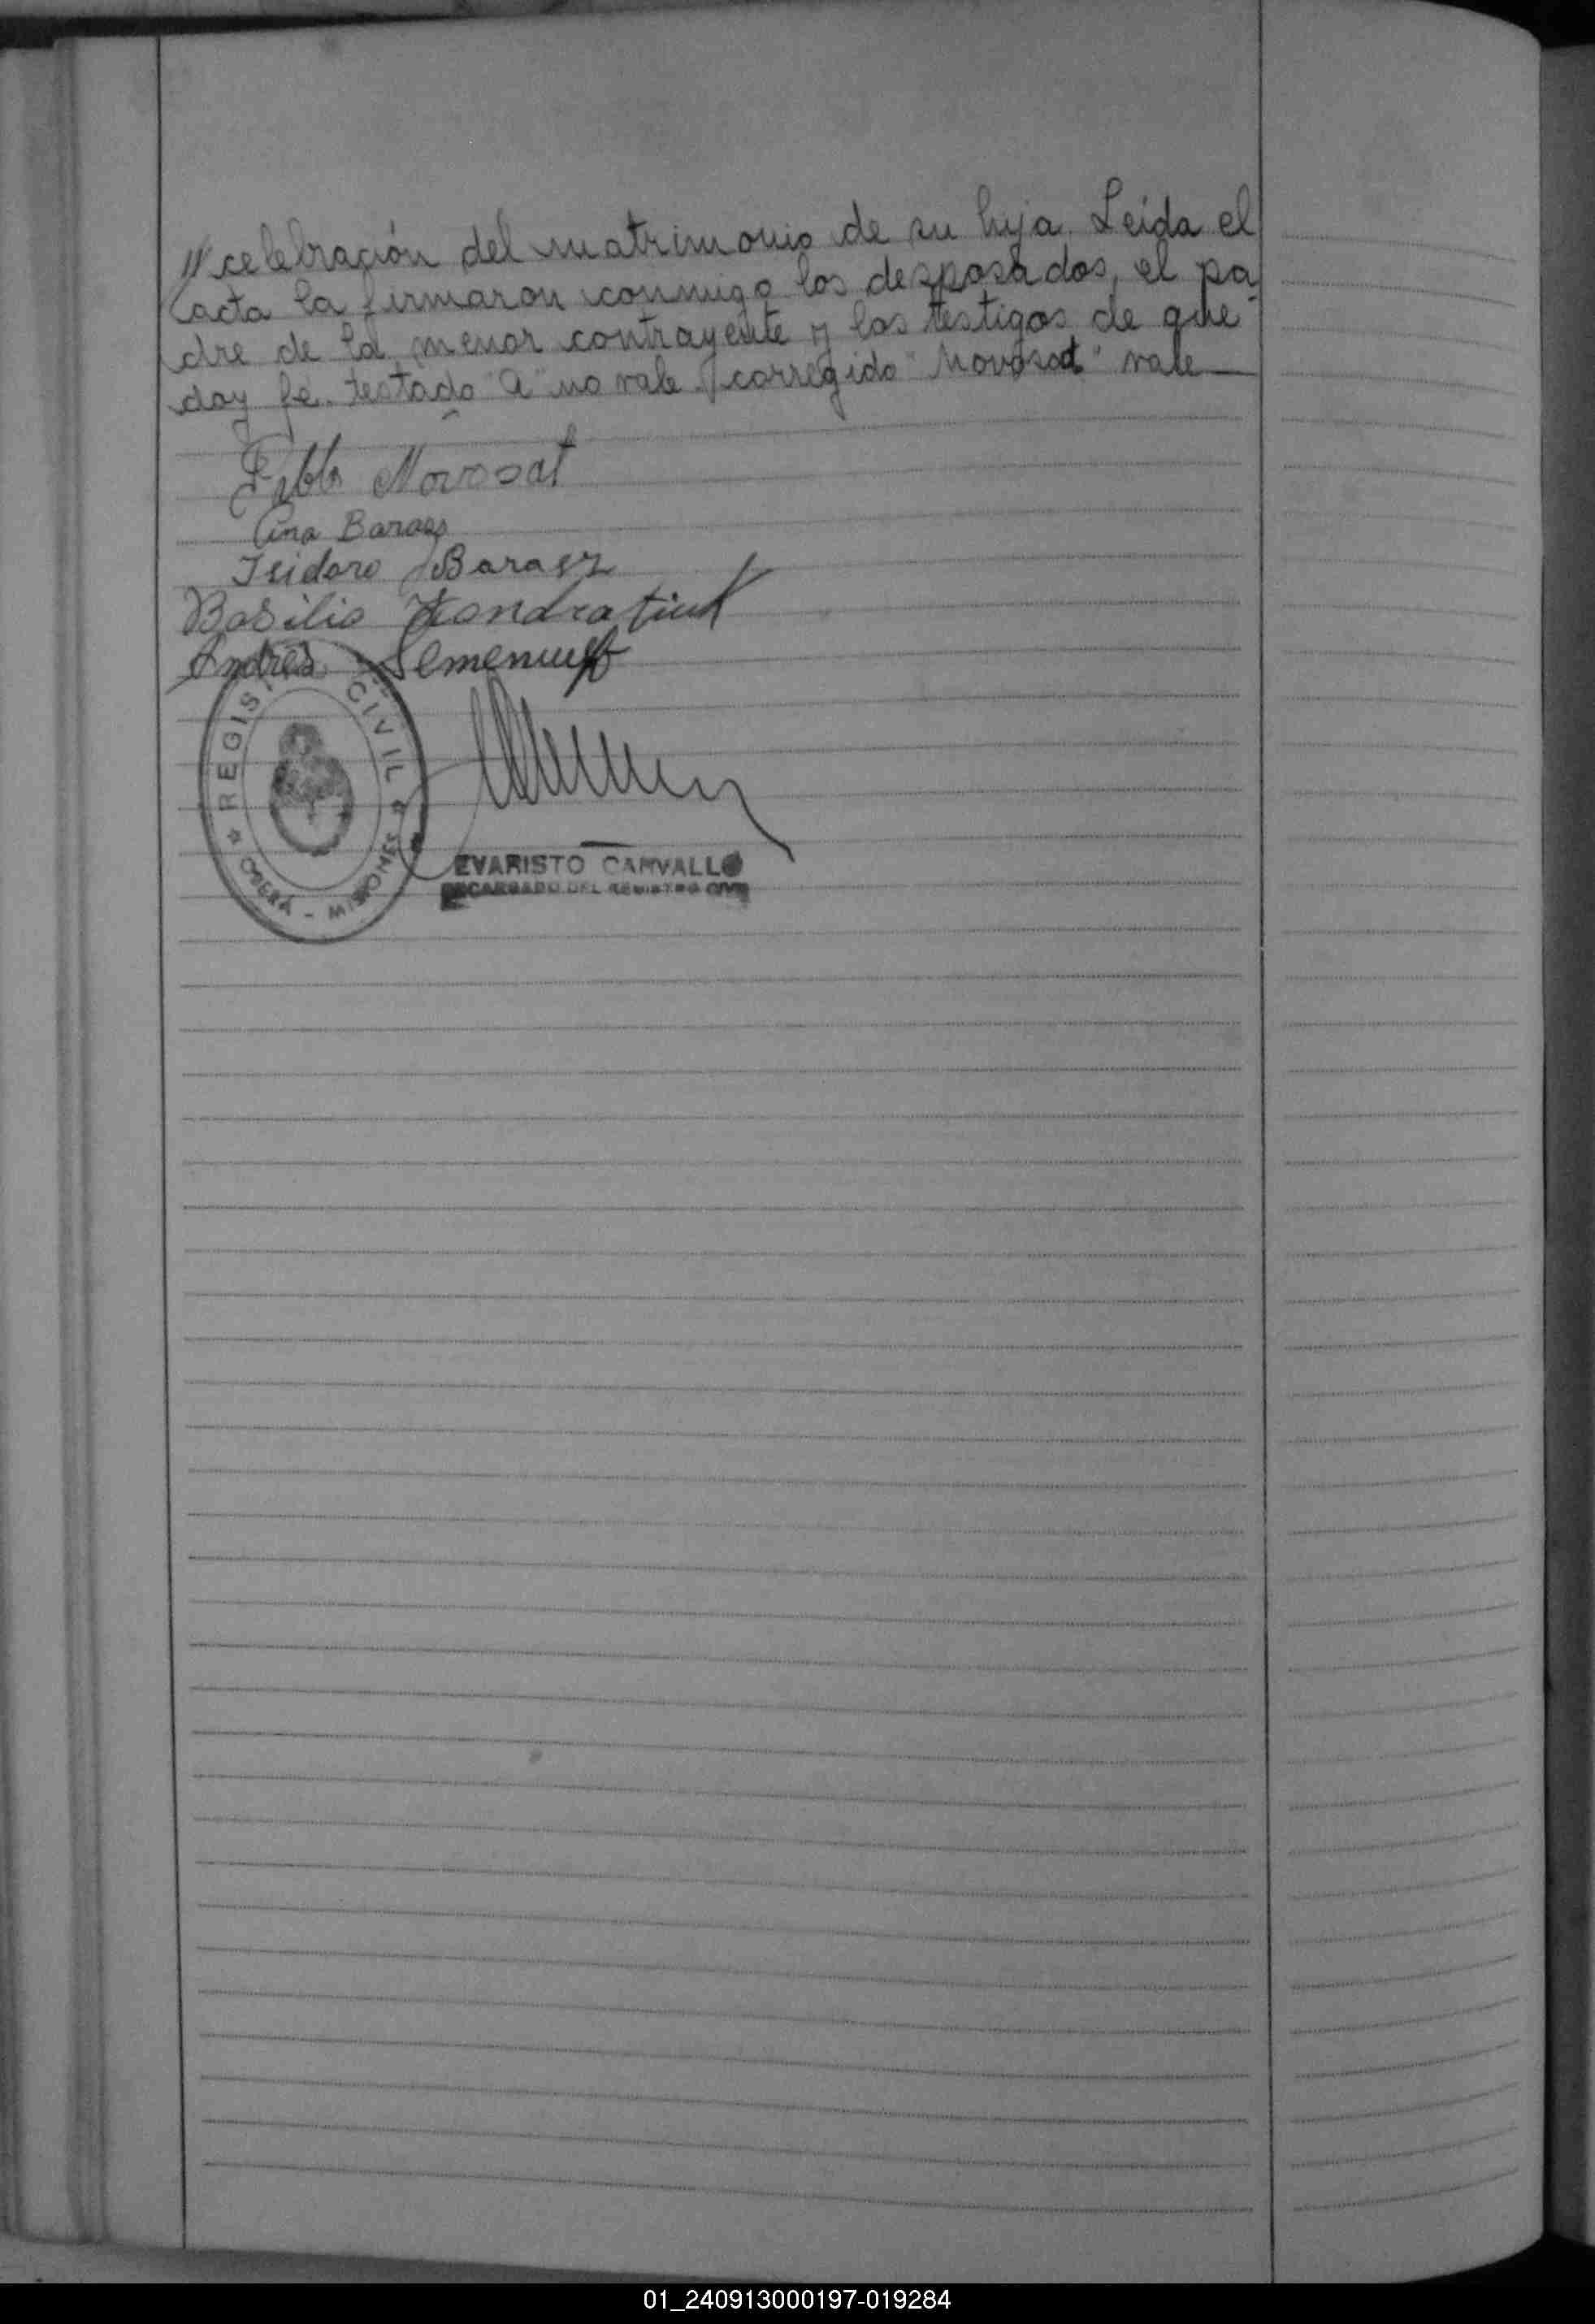 // celebración del matrimonio de su hija. Leída el
acta la firmaron conmigo los desposados, el pa
dre de la menor contrayente y los testigos de que
doy fé. testado "a" no vale. corregido "Novosat" vale
Pablo Novosat
Ana Barasz
Isidoro Barasz
Basilio Kondratiuk
Andrés Semeniuk
REGISTRO CIVIL
OBERÁ - MISIONES
EVARISTO CARVALLO
ENCARGADO DEL REGISTRO CIVIL
01_240913000197-019284